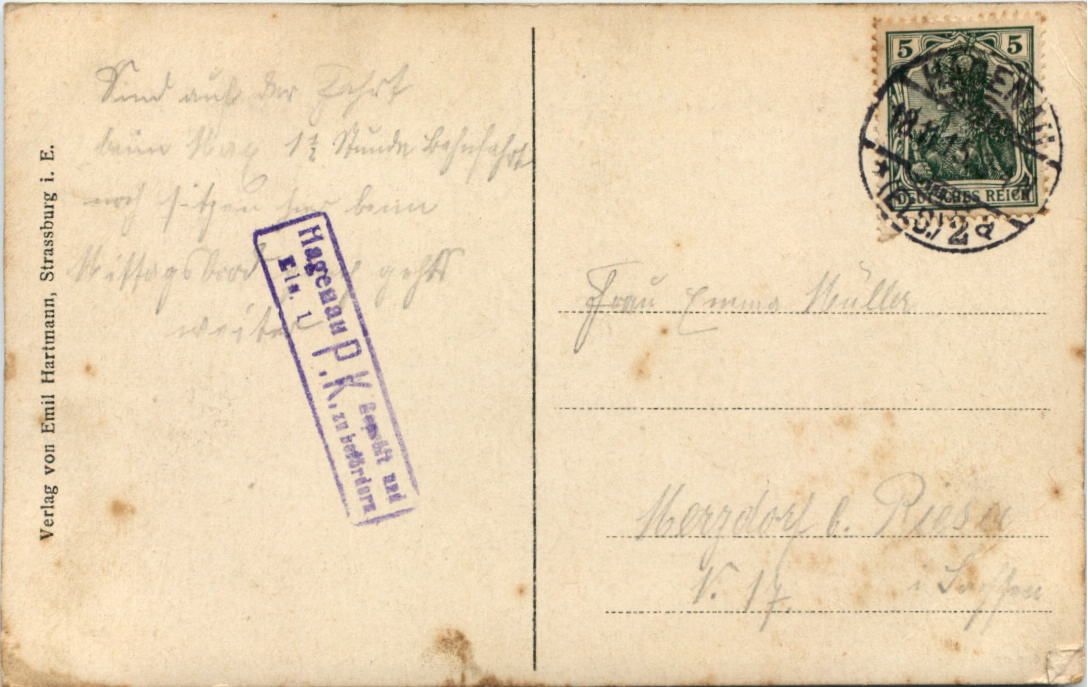 Sind auf der Fahrt
beim Max 1½ Stunde Bahnfahrt
noch sitzen hier beim
Mittagsbrod gehts
weiter
Verlag von Emil Hartmann, Strassburg i. E.
Hagenau
Els. 1.
P.K.
Geprüft und
zu befördern
5 5
DEUTSCHES REICH
HAGENAU
(ELS.) 2 d
Frau Emma Müller
Merzdorf b. Riesa
N. 17. i. Sachsen